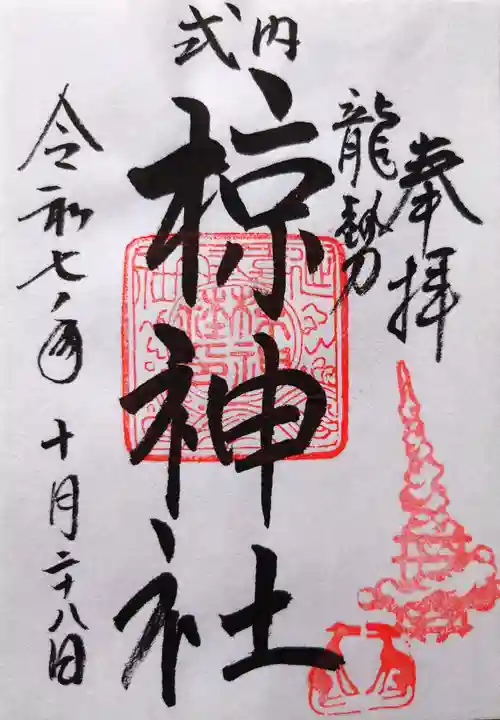 奉拝
龍勢
式内
椋神社
令和七年
十月二十八日